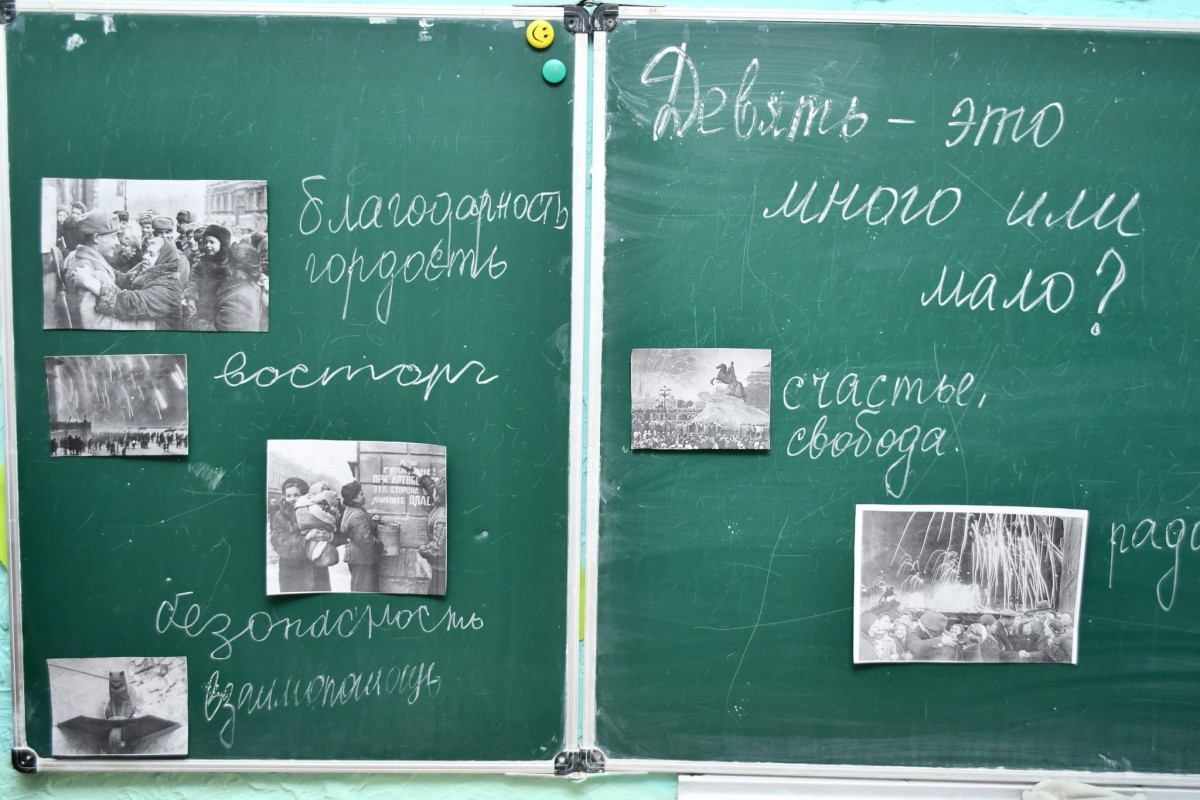 благодарность
гордость
восторг
ГРАЖДАНЕ!
ПРИ АРТОБС
ЭТА СТОРОНА У
НАИБОЛЕЕ ОПАС
безопасность
взаимопомощь
Девять – это
много или
мало?
счастье,
свобода.
рад